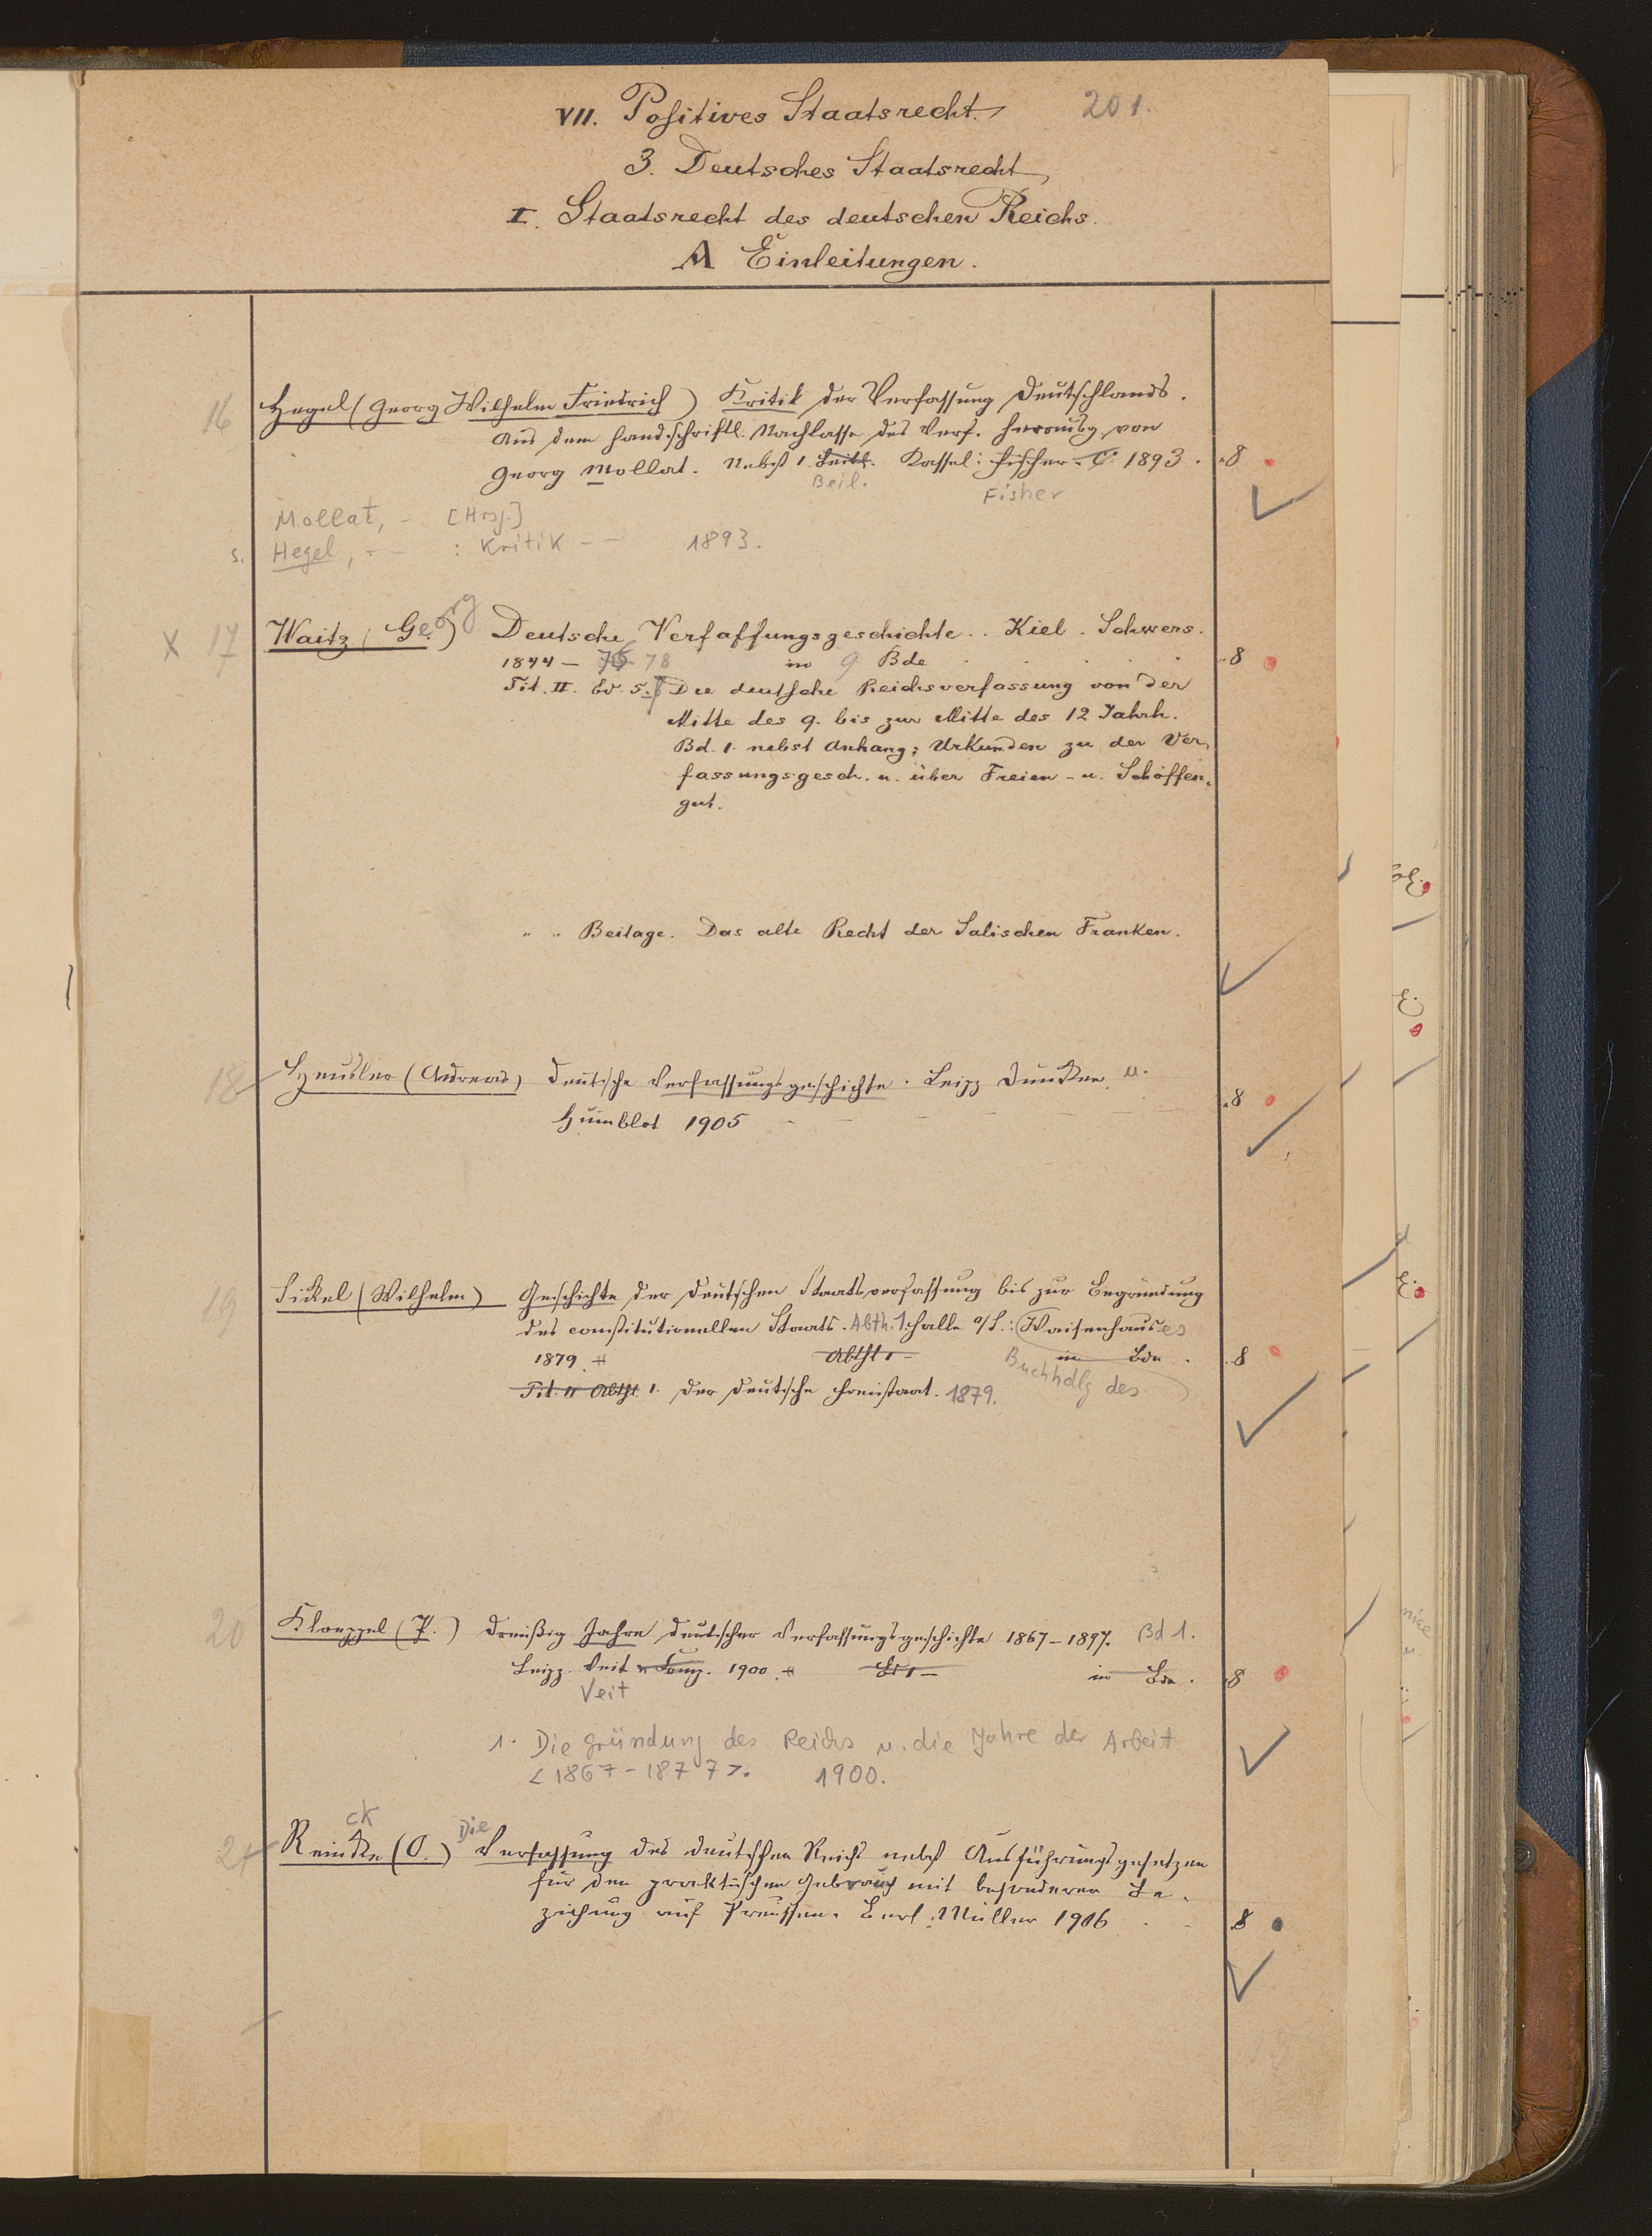 VII. Positives Staatsrecht. 201.
3. Deutsches Staatsrecht
I. Staatsrecht des deutschen Reichs.
A Einleitungen.
16 Hegel (Georg Wilhelm Friedrich) Kritik der Verfassung Deutschlands.
Aus dem handschriftl. Nachlasse des Verf. herausg. von
Georg Mollat. Nebst 1. Beil. Kassel: Fischer. C. 1893. 8
Beil. Fisher
Mollat, - [Hrsg.]
s. Hegel, - - : Kritik - - 1893.
X 17 Waitz (Georg) Deutsche Verfassungsgeschichte. Kiel. Schwers.
1844 - 76 78 in 9 Bde 8
Tit. II. Bd. 5. Die deutsche Reichsverfassung von der
Mitte des 9. bis zur Mitte des 12 Jahrh.
Bd. 1. nebst Anhang; Urkunden zu der Ver-
fassungsgesch. u. über Freien- u. Schöffen-
gut.
" " Beilage. Das alte Recht der Salischen Franken.
18 Heusler (Andreas) Deutsche Verfassungsgeschichte. Leipz Duncker u.
Humblot 1905 8
19 Sickel (Wilhelm) Geschichte der deutschen Staatsverfassung bis zur Begründung
des constitutionellen Staats. Abth. 1. Halle a/S.: Waisenhauses
1879. Abtht 1 - in Bdn. 8
Buchhdlg des
Tit. II Abtht. 1. Der deutsche Freistaat. 1879.
20 Kloeppel (P.) Dreißig Jahre deutscher Verfassungsgeschichte 1867-1897. Bd 1.
Leipz. Veit u Comp. 1900. Bd 1 - in Bdn. 8
Veit
1. Die Gründung des Reichs u. die Jahre der Arbeit
<1867-1877>. 1900.
ck Die
21 Reincke (O.) Verfassung des deutschen Reichs nebst Ausführungsgesetzen
für den praktischen Gebrauch mit besonderer Be-
ziehung auf Preussen. Berl. Müller 1906 8